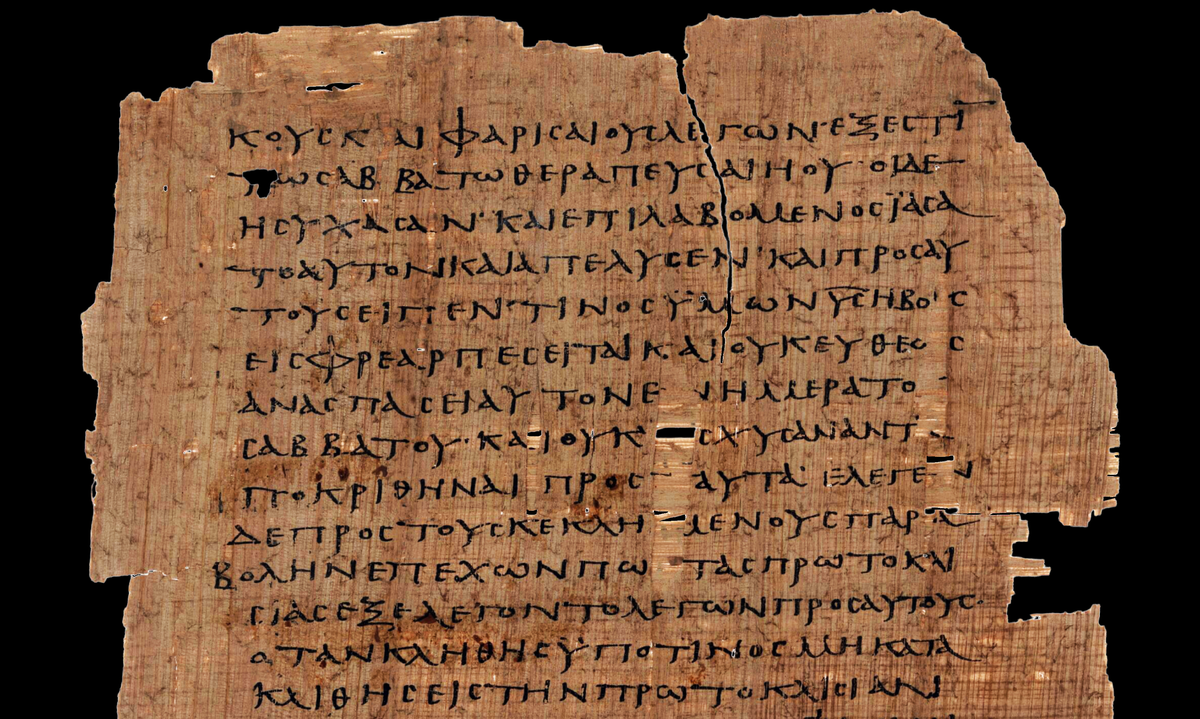 ΚΟΥϹΚΑΙΦΑΡΙϹΑΙΟΥϹΛΕΓΩΝ·ΕΞΕϹΤΙ
ΤΩϹΑΒΒΑΤΩΘΕΡΑΠΕΥϹΑΙΗΟΥ·ΟΙΔΕ
ΗϹΥΧΑϹΑΝ·ΚΑΙΕΠΙΛΑΒΟΜΕΝΟϹΪΑϹΑ
ΤΟΑΥΤΟΝΚΑΙΑΠΕΛΥϹΕΝ·ΚΑΙΠΡΟϹΑΥ
ΤΟΥϹΕΙΠΕΝ·ΤΙΝΟϹΫΜΩΝΥ̅Ϲ̅ΗΒΟΥϹ
ΕΙϹΦΡΕΑΡΠΕϹΕΙΤΑΙΚΑΙΟΥΚΕΥΘΕΩϹ
ΑΝΑϹΠΑϹΕΙΑΥΤΟΝΕΝΗΜΕΡΑΤΟ
ϹΑΒΒΑΤΟΥ·ΚΑΙΟΥΚ ϹΧΥϹΑΝΑΝΤ
ΠΟΚΡΙΘΗΝΑΙΠΡΟϹΤΑΥΤΑ·ΕΛΕΓΕΝ
ΔΕΠΡΟϹΤΟΥϹΚΕΚΛΗΜΕΝΟΥϹΠΑΡΑ
ΒΟΛΗΝΕΠΕΧΩΝΠΩ ΤΑϹΠΡΩΤΟΚΛΙ
ϹΙΑϹΕΞΕΛΕΓΟΝΤΟΛΕΓΩΝΠΡΟϹΑΥΤΟΥϹ·
ΟΤΑΝΚΛΗΘΗϹΫΠΟΤΙΝΟϹΜΗΚΑΤΑ
ΚΛΙΘΗϹΕΙϹΤΗΝΠΡΩΤΟΚΛΙϹΙΑΝ